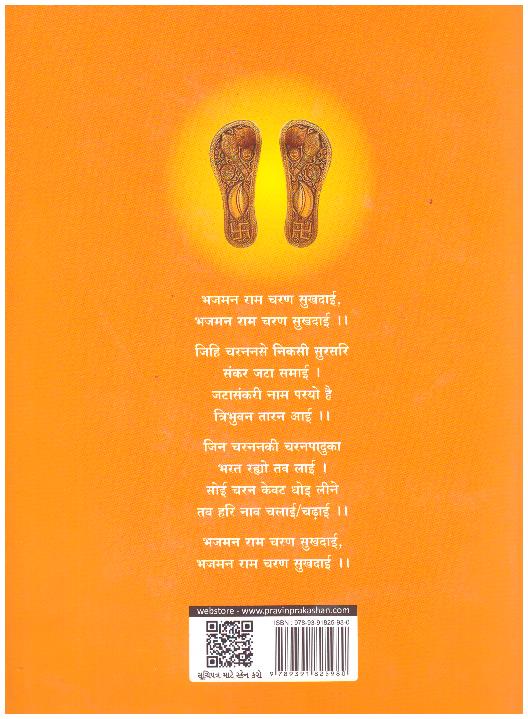 भजमन राम चरण सुखदाई,
भजमन राम चरण सुखदाई ।।
जिहि चरननसे निकसी सुरसरि
संकर जटा समाई ।
जटासंकरी नाम परयो है
त्रिभुवन तारन आई ।।
जिन चरननकी चरनपादुका
भरत रह्यो तव लाई ।
सोई चरन केवट धोइ लीने
तव हरि नाव चलाई/चढ़ाई ।।
भजमन राम चरण सुखदाई,
भजमन राम चरण सुखदाई ।।
webstore - www.pravinprakashan.com
ISBN : 978-93-91825-98-0
સૂચિપત્ર માટે સ્કેન કરો
9789391825980